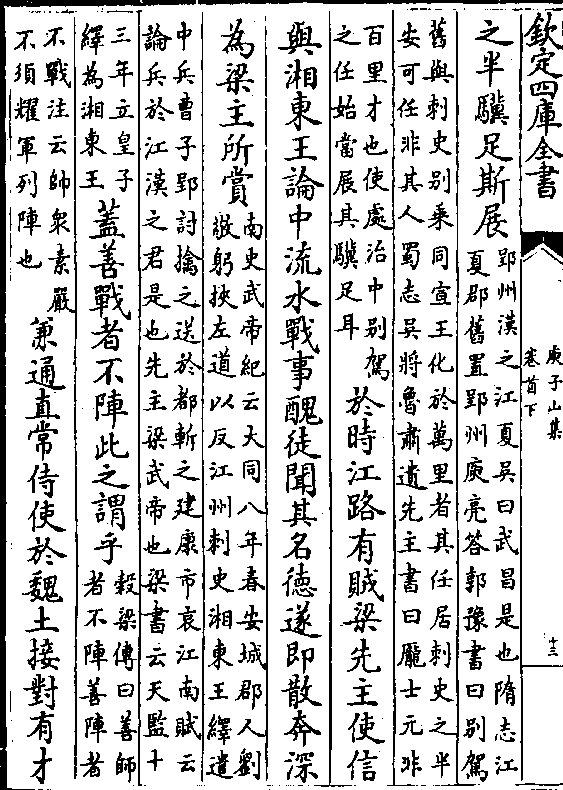 欽定四庫全書
庾子山集
卷首下
十三
之半驥足斯展
郢州漢之江夏吳曰武昌是也隋志江
夏郡舊置郢州庾亮答郭豫書曰別駕
舊與刺史別乘同宣王化於萬里者其任居刺史之半
安可任非其人蜀志吳將魯肅遺先主書曰龐士元非
百里才也使處治中別駕
之任始當展其驥足耳
於時江路有賊梁先主使信
與湘東王論中流水戰事醜徒聞其名德遂即散奔深
為梁主所賞
南史武帝紀云大同八年春安城郡人劉
敬躬挾左道以反江州刺史湘東王繹遣
中兵曹子郢討擒之送於都斬之建康市哀江南賦云
論兵於江漢之君是也先主梁武帝也梁書云天監十
三年立皇子
繹為湘東王
蓋善戰者不陣此之謂乎
穀梁傳曰善師
者不陣善陣者
不戰注云師衆素嚴
不須耀軍列陣也
兼通直常侍使於魏土接對有才